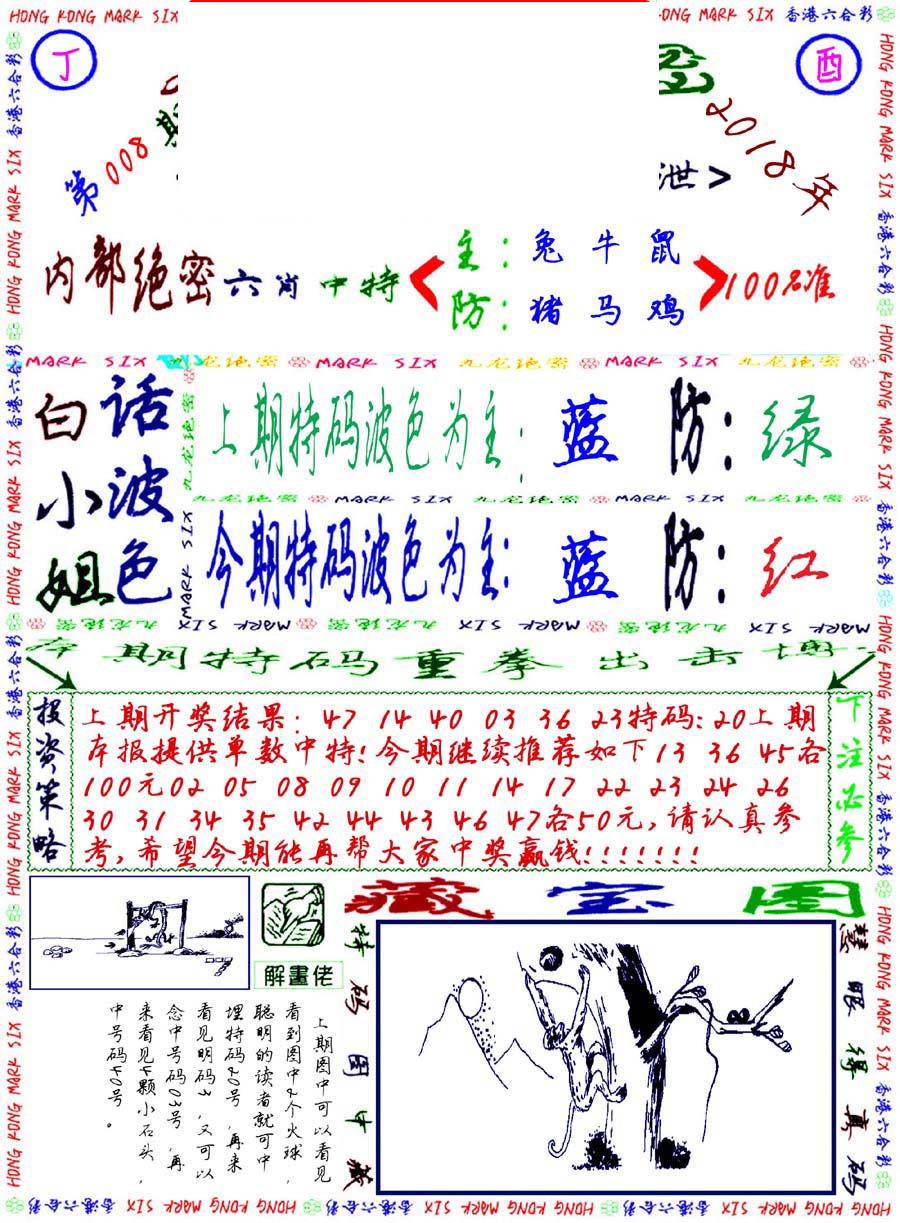 HONG KONG MARK SIX 香港六合彩
丁
酉
第008期
2018年
泄>
内部绝密六肖中特
主：兔 牛 鼠
防：猪 马 鸡
100%准
MARK SIX 九龙绝密 MARK SIX 九龙绝密 MARK SIX 九龙绝密
白话
小波
姐色
上期特码波色为主：蓝 防：绿
九龙绝密 MARK SIX 九龙绝密 MARK SIX 九龙绝密
今期特码波色为主：蓝 防：红
本期特码重拳出击
投资策略
上期开奖结果：47 14 40 03 36 23特码：20上期
本报提供单数中特！今期继续推荐如下13 36 45各
100元02 05 08 09 10 11 14 17 22 23 24 26
30 31 34 35 42 44 43 46 47各50元，请认真参
考，希望今期能再帮大家中奖赢钱！！！！！！！
下注必参
藏宝图
解畫佬
上期图中可以看见
看到图中2个火球，
聪明的读者就可中
埋特码20号，再来
看见明码3，又可以
念中号码03号，再
来看见4颗小石头，
中号码40号。
特码图中藏
慧眼得真码